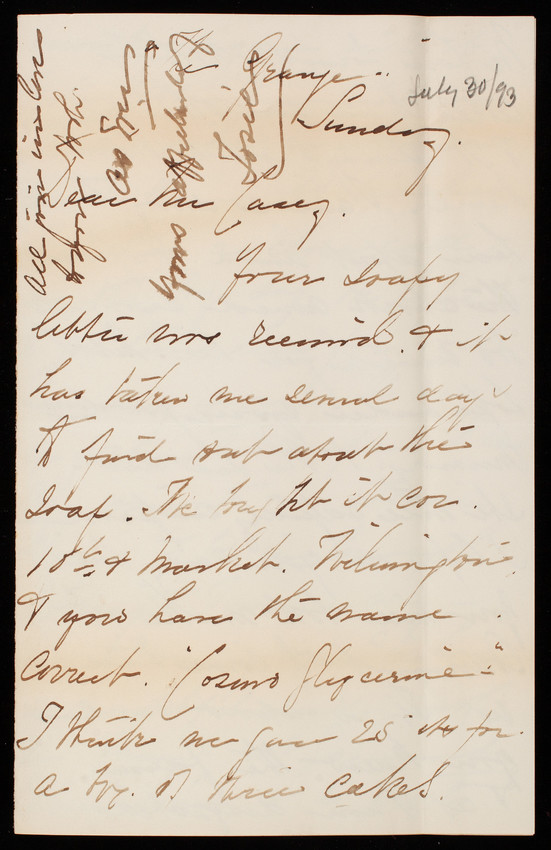 "The Grange"
July 30/93
Sunday.
Dear Mr Casey.
Your soapy
letter was received. & it
has taken me several days
to find out about the
soap. We bought it cor.
10th & Market. Wilmington
& you have the name
correct. "Cosmo Glycerine"
I think we gave 25 cts for
a box of three cakes.
All join in love
before
as Ever
Yours affectionately